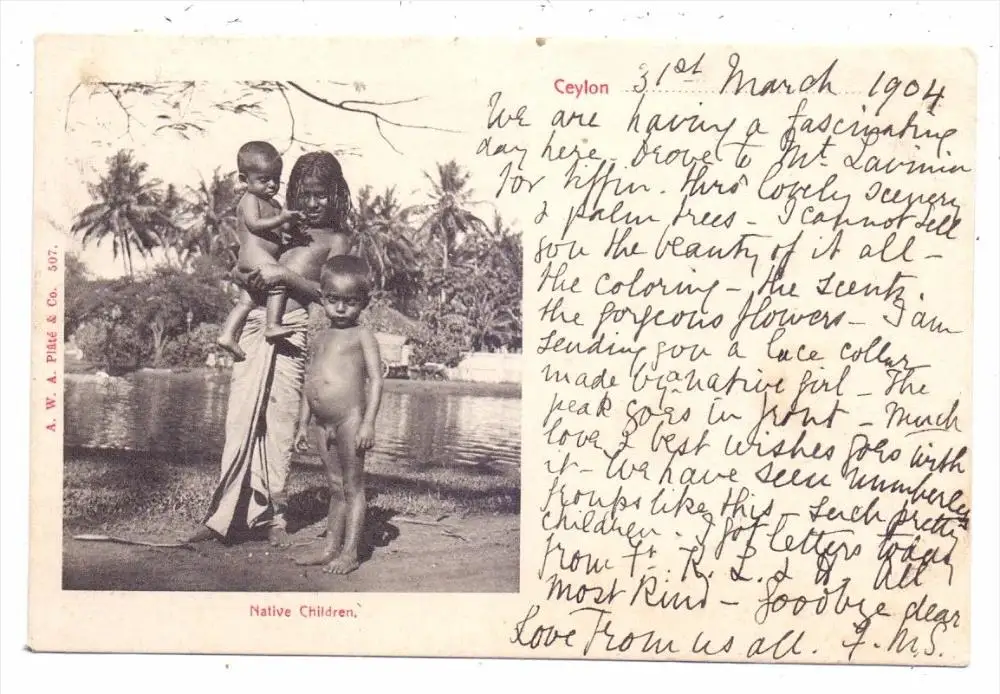 Ceylon 31st March 1904
We are having a fascinating
day here. Drove to Mt. Lavinia
for tiffin. thro' lovely scenery
& palm trees - I cannot tell
you the beauty of it all -
the coloring - the scents.
the gorgeous flowers - I am
sending you a lace collar
made by a native girl - The
peak goes in front - Much
love & best wishes goes with
it - We have seen numberless
groups like this - Such pretty
children. I got letters today
from F. K. L. & H. All
most kind - Goodbye dear
Love from us all. F.M.S.
A. W. A. Plâté & Co. 507.
Native Children.